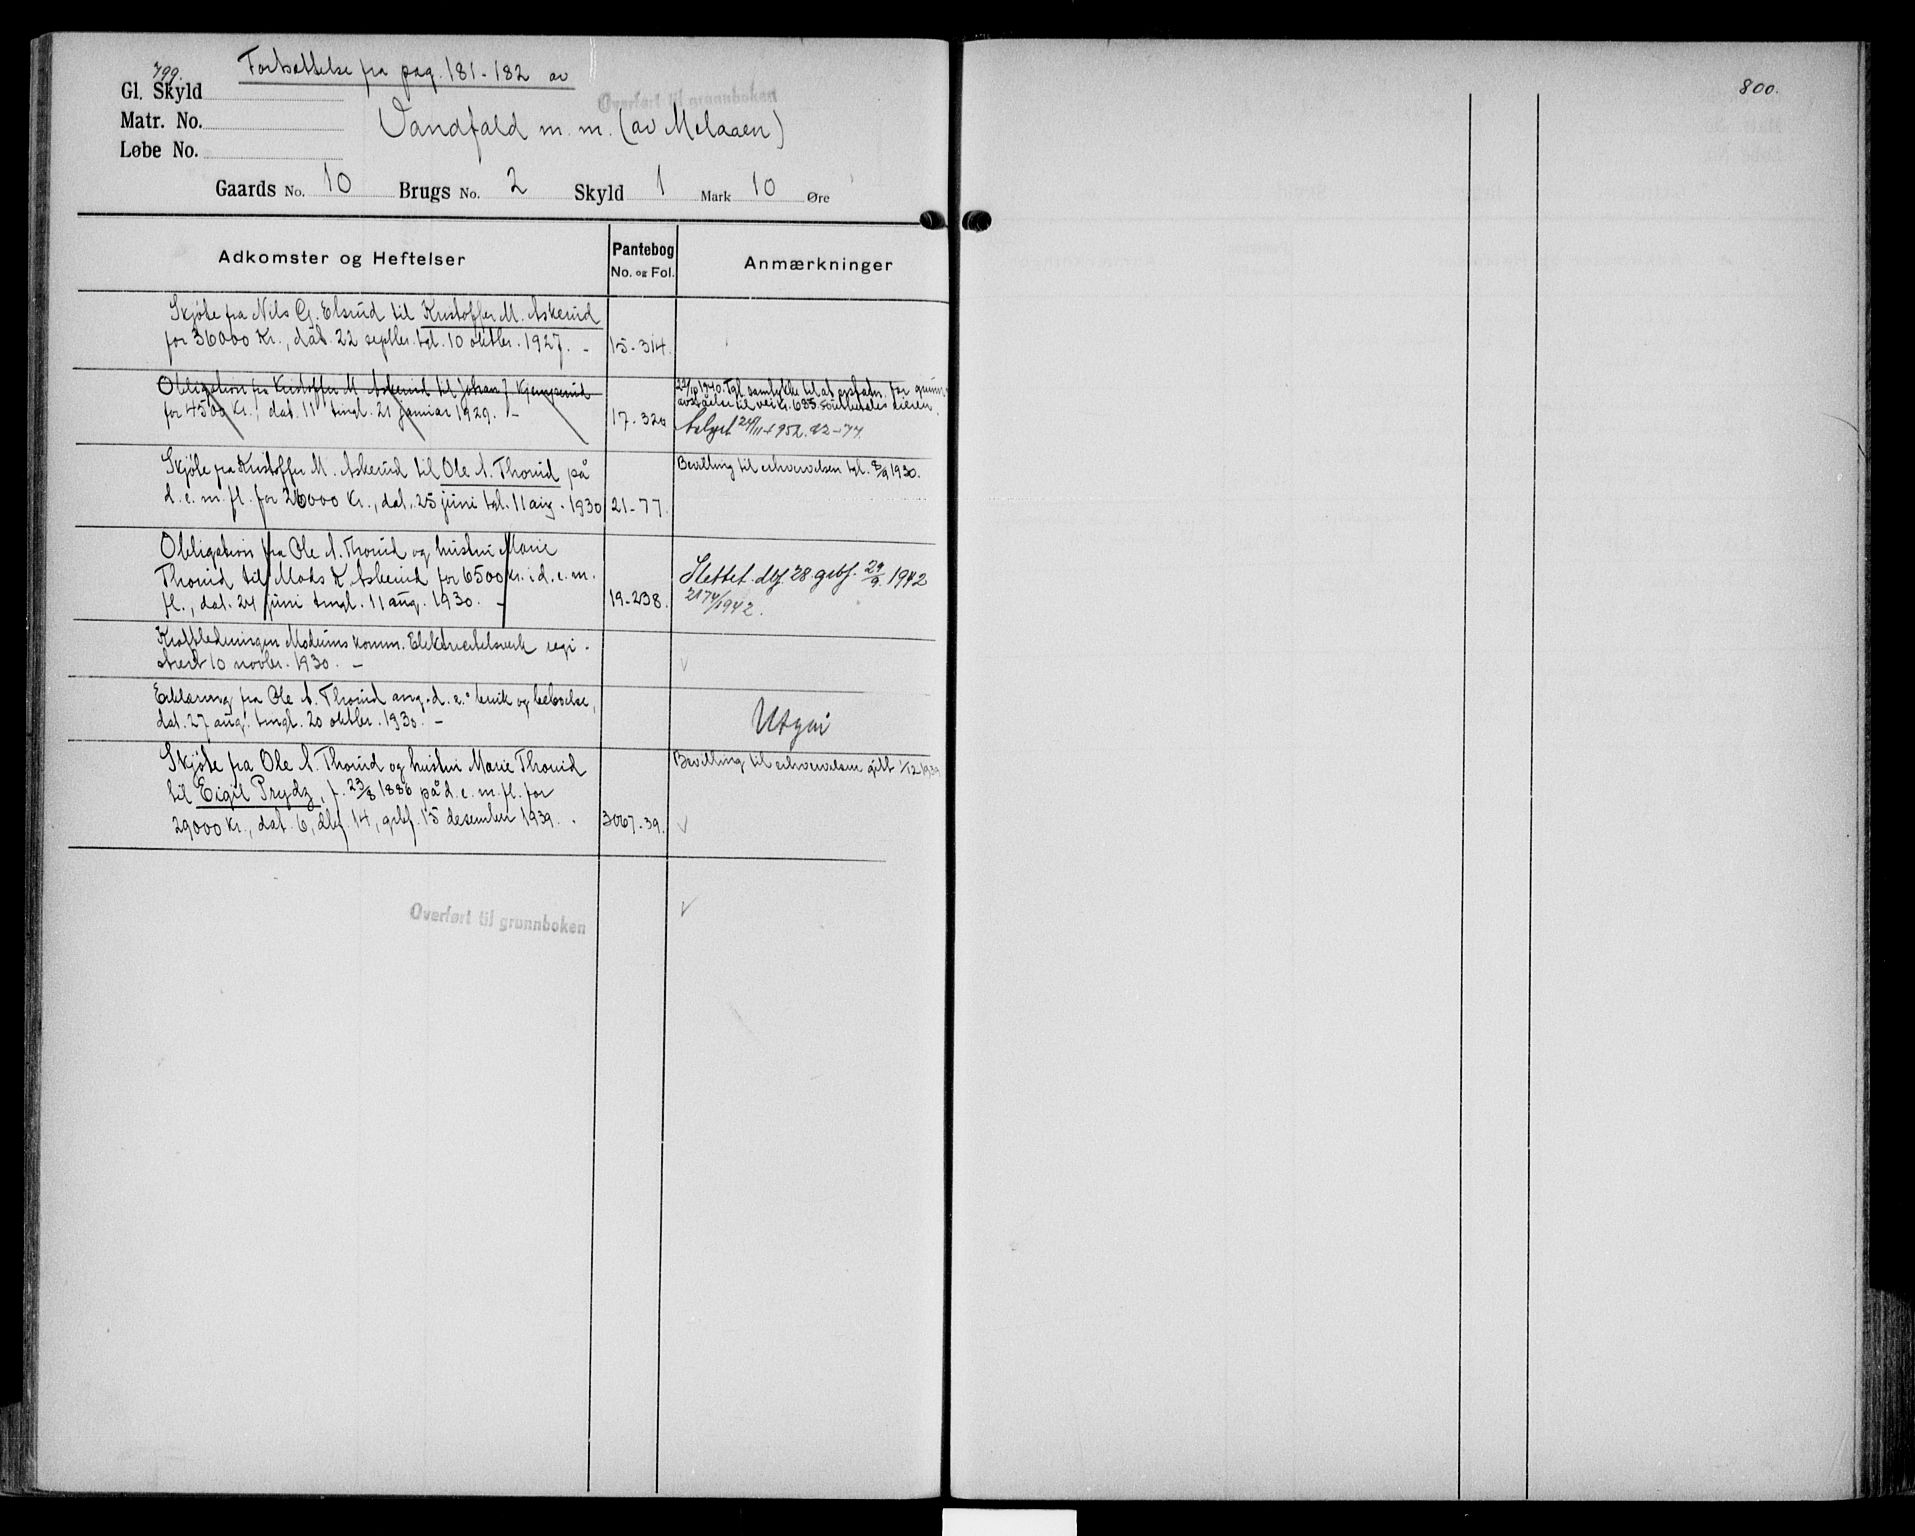 799.
Fortsættelse fra pag. 181-182 av
Gl. Skyld
Overført til grunnboken
Matr. No.
Vandfald m. m. (av Melaaen)
Løbe No.
Gaards No. 10 Brugs No. 2 Skyld 1 Mark 10 Øre
Adkomster og Heftelser
Pantebog
No. og Fol.
Anmærkninger
Skjöte fra Nils G. Elsrud til Kristoffer M. Askerud
for 36000 Kr., dat. 22 septbr. tgl. 10 oktbr. 1927. - 15-314.
Obligation fra Kristoffer M. Askerud til Johan J. Kjemperud
for 4500 Kr., dat. 11 tingl. 21 januar 1929. - 17-320
22/10 1940. Tgl. samtykke til at erstatn. for grunn-
avståelse til vei kr. 635 utbetales eieren.
Avlyst 24/11 1952. 22-77.
Skjöte fra Kristoffer M. Askerud til Ole A. Thorud på
d. e. m. fl. for 26000 Kr., dat. 25 juni tgl. 11 aug. 1930 21-77.
Bevilling til erhvervelsen tgl. 8/9 1930.
Obligation fra Ole A. Thorud og hustru Marie
Thorud til Mads K. Askerud for 6500 kr. i d. e. m.
fl., dat. 24 juni tingl. 11 aug. 1930. - 19-238.
Slettet. dbf. 28. grbf. 29/9. 1942
2174/1942.
Kraftledningen Modums komm. Elektricitetsverk regi-
streret 10 novbr. 1930. -
Erklæring fra Ole A. Thorud ang. d. e.s bruk og beboelse,
dat. 27 aug. tingl. 20 oktbr. 1930. -
Utgår
Skjöte fra Ole A. Thorud og hustru Marie Thorud
til Eigil Prydz, f. 23/8 1886 på d. e. m. fl. for
29000 Kr., dat. 6, dbf. 14, grbf. 15 desember 1939. 3067-39.
Bevilling til erhvervelsen gitt 1/12 1939
Overført til grunnboken
800.